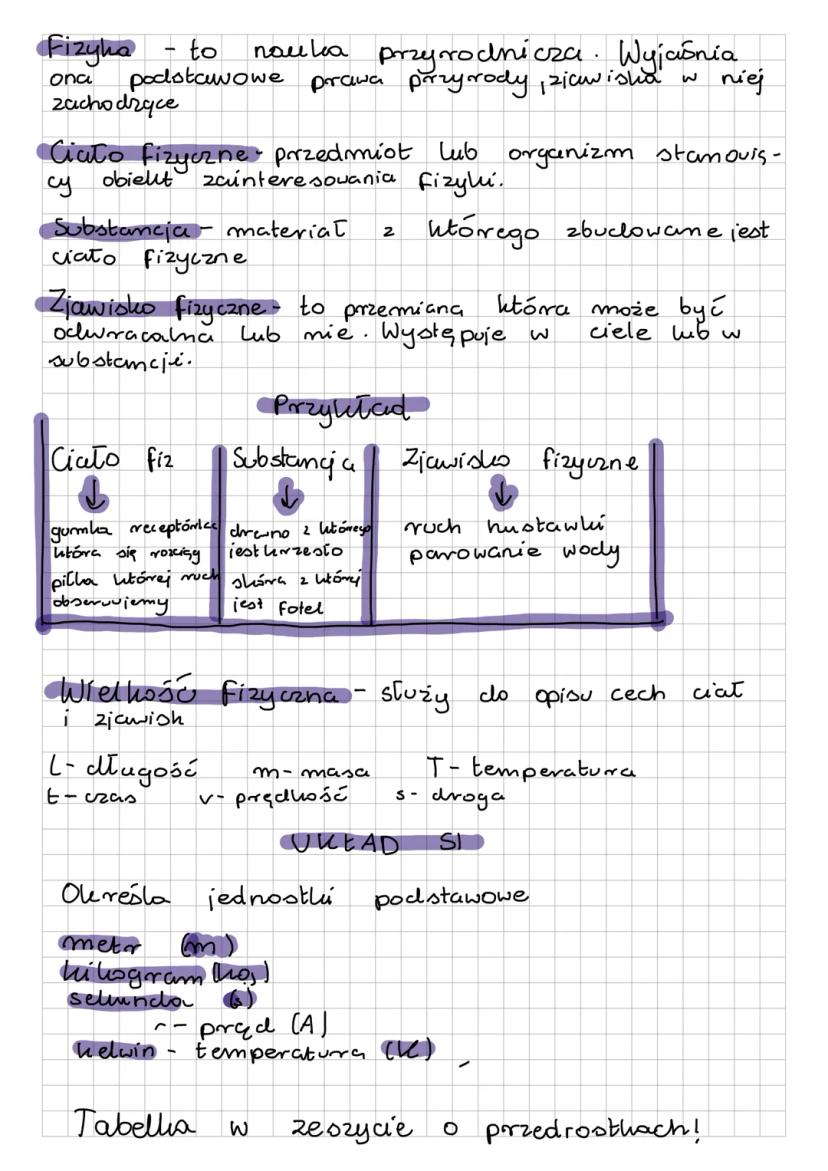 Fizyka - to nauka przyrodnicza. Wyjaśnia
ona podstawowe prawa przyrody, zjawiska w niej
zachodzące
Ciało fizyczne - przedmiot lub organizm stanowią-
cy obiekt zainteresowania fizyki.
Substancja - materiał z którego zbudowane jest
ciało fizyczne
Zjawisko fizyczne - to przemiana która może być
odwracalna lub nie. Występuje w ciele lub w
substancji.
Przykład
Ciało fiz
gumka receptórka
która się rozciąg
piłka której ruch
obserwujemy
Substancja
drewno z którego
jest krzesło
skóra z której
jest fotel
Zjawisko fizyczne
ruch huśtawki
parowanie wody
Wielkość fizyczna - służy do opisu cech ciał
i zjawisk
L - długość m - masa T - temperatura
t - czas v - prędkość s - droga
UKŁAD SI
Określa jednostki podstawowe
metr (m)
kilogram (kg)
sekunda (s)
- prąd (A)
kelwin - temperatura (K)
Tabelka w zeszycie o przedrostkach!